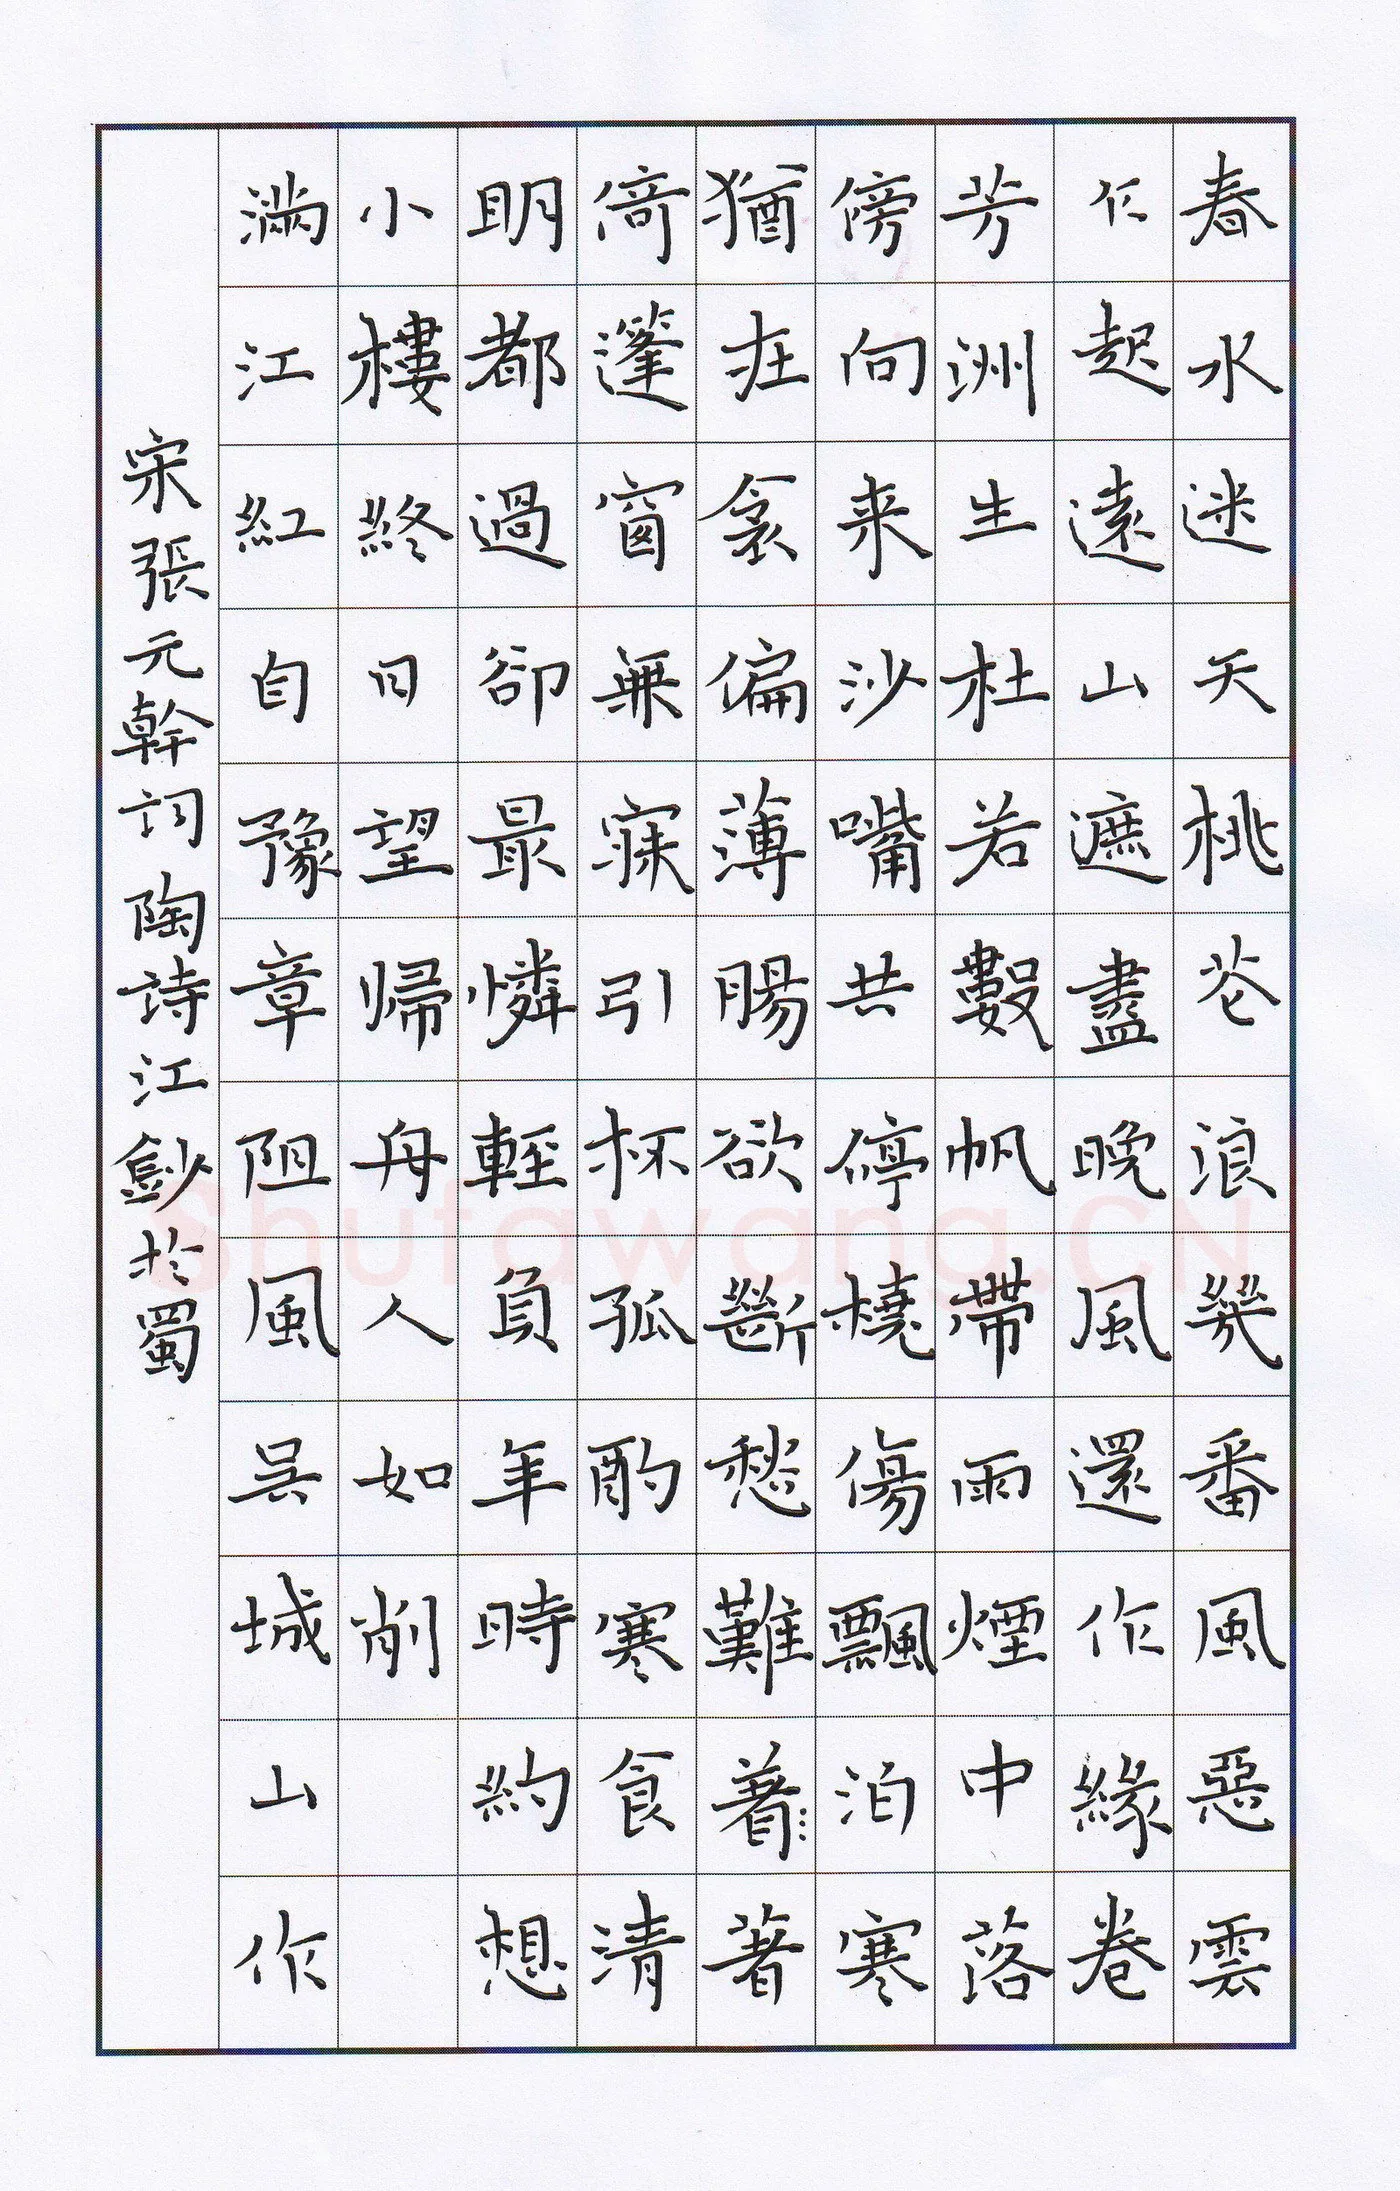 春水迷天桃花浪幾番風惡雲
乍起遠山遮盡晚風還作綠卷
芳洲生杜若數帆帶雨煙中落
傍向来沙嘴共停橈傷飄泊寒
猶在衾偏薄腸欲斷愁難著著
倚篷窗無寐引杯孤酌寒食清
明都過卻最憐輕負年時約想
小樓終日望帰舟人如削
滿江紅自豫章阻風吳城山作
宋張元幹詞陶詩江鈔於蜀
Shufawang.CN